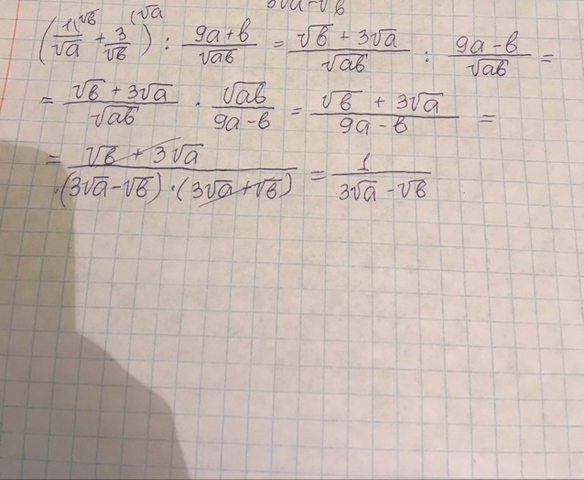 3√a − √b
(1\√b/√a + 3\√a/√b) : (9a+b)/√ab = (√b + 3√a)/√ab : (9a−b)/√ab =
= (√b + 3√a)/√ab · √ab/(9a−b) = (√b + 3√a)/(9a−b) =
= (√b + 3√a)/((3√a−√b)·(3√a+√b)) = 1/(3√a −√b)